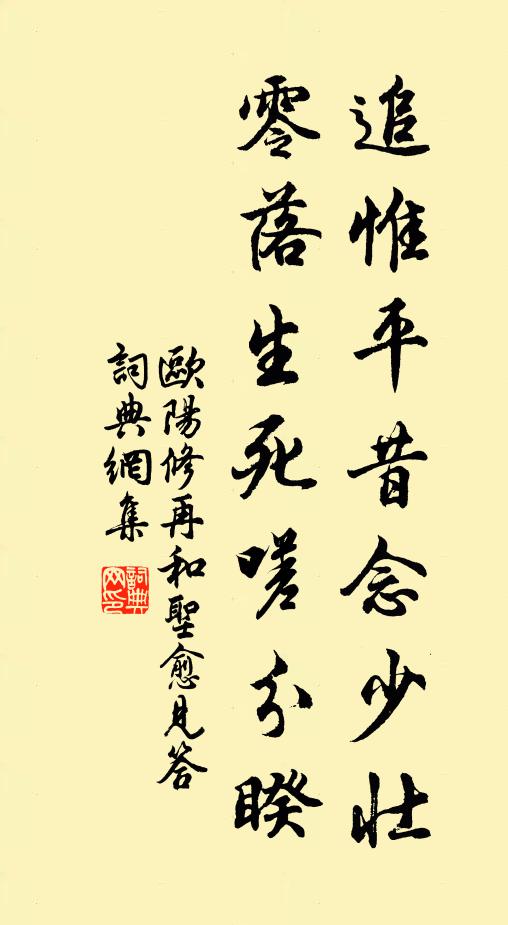 追惟平昔念少壯
零落生死嗟分睽
歐陽修再和聖愈見答
詞典網集
詞典網印